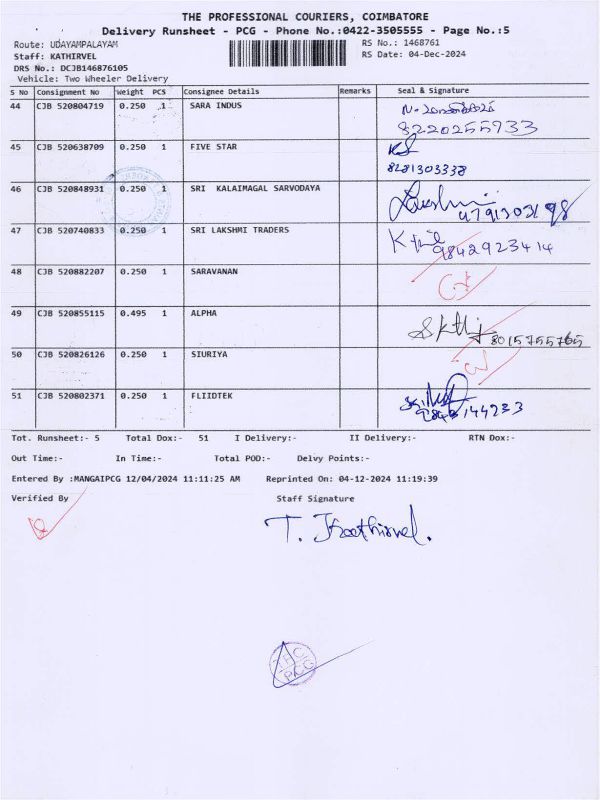 THE PROFESSIONAL COURIERS, COIMBATORE
Delivery Runsheet - PCG - Phone No.:0422-3505555 - Page No.:5
Route: UDAYAMPALAYAM
RS No.: 1468761
Staff: KATHIRVEL
RS Date: 04-Dec-2024
DRS No.: DCJB146876105
Vehicle: Two Wheeler Delivery
S No Consignment No Weight PCS Consignee Details Remarks Seal & Signature
44 CJB 520804719 0.250 1 SARA INDUS
8220255933
45 CJB 520638709 0.250 1 FIVE STAR KS
8281303338
46 CJB 520848931 0.250 1 SRI KALAIMAGAL SARVODAYA Lakshmi
9791302198
47 CJB 520740833 0.250 1 SRI LAKSHMI TRADERS
9842923414
48 CJB 520882207 0.250 1 SARAVANAN
49 CJB 520855115 0.495 1 ALPHA
8015755765
50 CJB 520826126 0.250 1 SIURIYA
51 CJB 520802371 0.250 1 FLIIDTEK
Tot. Runsheet:- 5 Total Dox:- 51 I Delivery:- II Delivery:- RTN Dox:-
Out Time:- In Time:- Total POD:- Delvy Points:-
Entered By :MANGAIPCG 12/04/2024 11:11:25 AM Reprinted On: 04-12-2024 11:19:39
Verified By Staff Signature
T. Kathirvel.
PCG